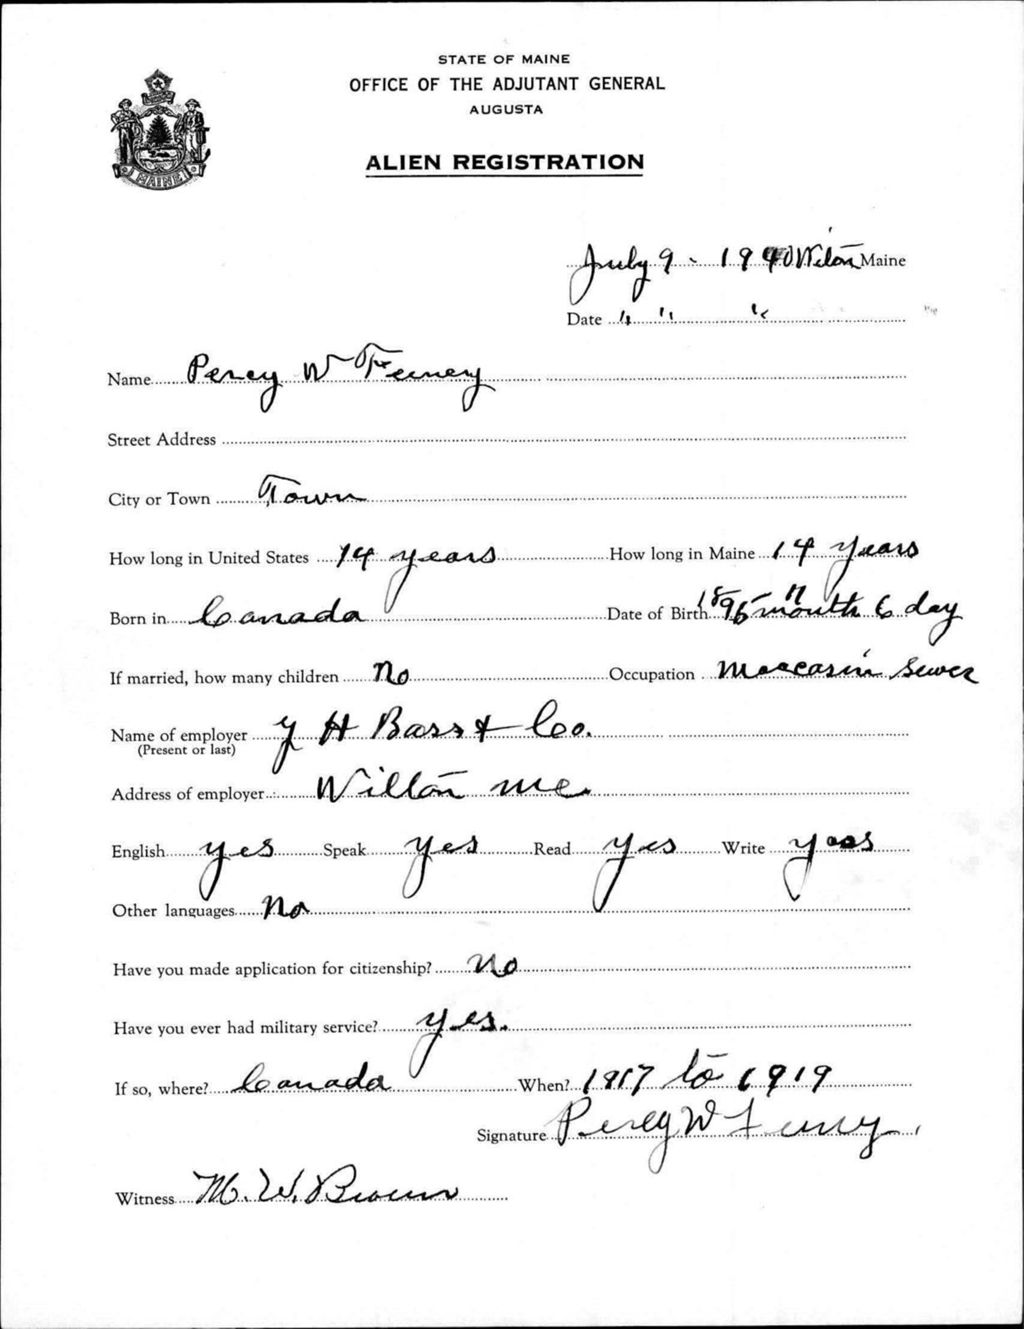 STATE OF MAINE
OFFICE OF THE ADJUTANT GENERAL
AUGUSTA
MAINE
ALIEN REGISTRATION
July 9 - 1940 Wilton Maine
Date " " "
Name Percy W Feeney
Street Address
City or Town Town
How long in United States 14 years How long in Maine 14 years
Born in Canada Date of Birth 1896 month 6 day
If married, how many children No Occupation Moccasin Sewer
Name of employer H Bass & Co.
(Present or last)
Address of employer Wilton me.
English yes Speak yes Read yes Write yes
Other languages No
Have you made application for citizenship? No
Have you ever had military service? yes.
If so, where? Canada When? 1917 to 1919
Signature Percy W Feeney
Witness M. W. Brown